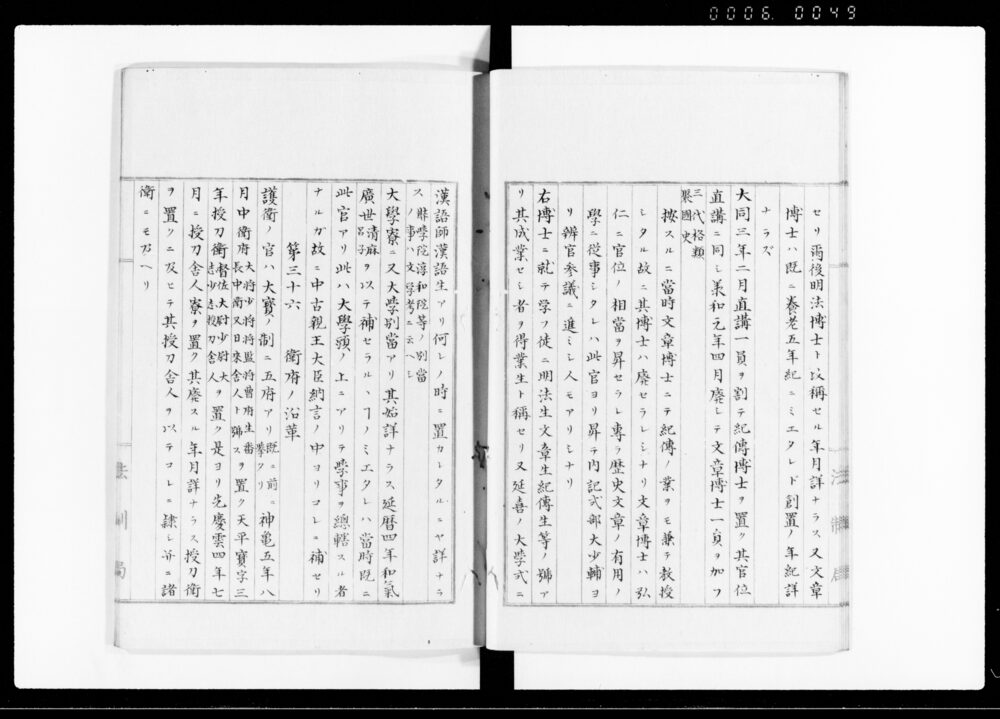 0006.0049
セリ爾後明法博士ト改稱セル年月詳ナラス又文章
博士ハ既ニ養老五年紀ニミエタレド創置ノ年紀詳
ナラズ
大同三年二月直講一員ヲ割テ紀傳博士ヲ置ク其官位
直講ニ同シ義和元年四月廢シテ文章博士一員ヲ加フ
三代格類
聚國史
按スルニ當時文章博士ニテ紀傳ノ業ヲモ兼テ教授
シタル故ニ其博士ハ廢セラレシナリ文章博士ハ弘
仁ニ官位ノ相當ヲ昇セラレ專ラ歴史文章ノ有用ノ
學ニ從事シタレハ此官ヨリ昇テ内記式部大少輔ヨ
リ辨官参議ニ進ミシ人モアリシナリ
右博士ニ就テ学フ徒ニ明法生文章生紀傳生等ノ號ア
リ其成業セシ者ヲ得業生ト稱セリ又延喜ノ大学式ニ
漢語師漢語生アリ何レノ時ニ置カレタルニヤ詳ナラ
ス
學院淳和院等ノ別當
ノ事ハ文学考ニ云ヘシ
大學寮ニ又大学別當アリ其始詳ナラス延暦四年和氣
廣世清麻
呂子
ヲ以テ補セラルヽヿノミエタレハ當時既ニ
此官アリ此ハ大學頭ノ上ニアリテ学事ヲ總轄スル者
ナルガ故ニ中古親王大臣納言ノ中ヨリコレニ補セリ
第三十六 衛府ノ沿革
護衛ノ官ハ大寶ノ制ニ五府アリ既ニ前ニ
擧クリ
神亀五年八
月中衛府
大將少將將監將曹府生番
長中衛又日東舍人ト號ス
ヲ置ク天平寶字三
年授刀衛
督佐大尉少尉大
志少志授刀舍人
ヲ置ク是ヨリ先慶雲四年七
月ニ授刀舍人寮ヲ置ク其廢スル年月詳ナラス授刀衛
ヲ置クニ及ヒテ其授刀舍人ヲ以テコレニ隷シ並ニ諸
衛ニモ及ヘリ
法制局